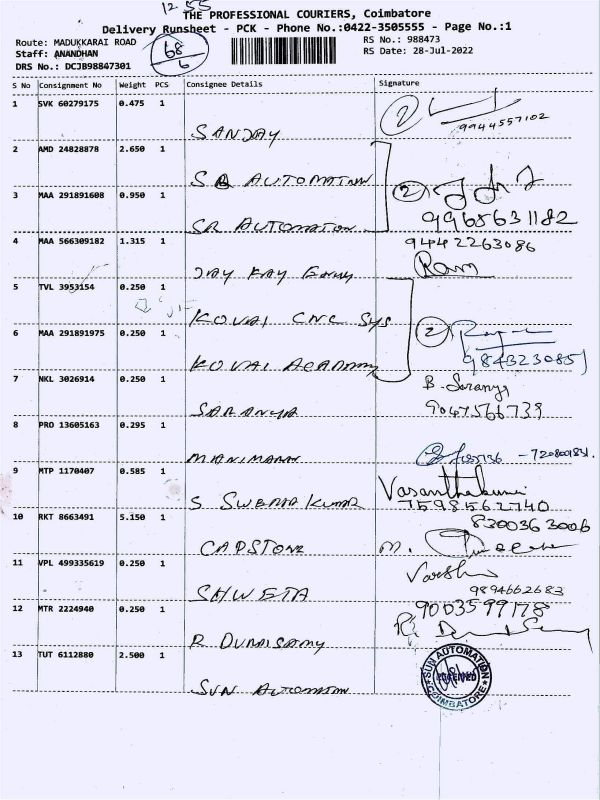 12-55
THE PROFESSIONAL COURIERS, Coimbatore
Delivery Runsheet - PCK - Phone No.:0422-3505555 - Page No.:1
Route: MADUKKARAI ROAD
68/6
RS No.: 988473
Staff: ANANDHAN
RS Date: 28-Jul-2022
DRS No.: DCJB98847301
S No Consignment No Weight PCS Consignee Details Signature
1 SVK 60279175 0.475 1
2
9944557102
SANJAY
2 AMD 24828878 2.650 1
SR AUTOMATION
3 MAA 291891608 0.950 1
2
9968631182
SR AUTOMATION
4 MAA 566309182 1.315 1
9442263086
JAY KAY Ram
5 TVL 3953154 0.250 1
KOVAI CNC SYS
6 MAA 291891975 0.250 1
2
KOVAI ACADEMY
7 NKL 3026914 0.250 1
B. Saranya
9047566739
SARANYA
8 PRO 13605163 0.295 1
MANIMARAN
9 MTP 1170407 0.585 1
Vasanthakumar
7598562740
S SWETHA KUMAR
10 RKT 8663491 5.150 1
830036 3006
CAPSTONE M.
11 VPL 499335619 0.250 1
Varsha
9894662683
SHWETA
12 MTR 2224940 0.250 1
9003599178
R DURAISAMY
13 TUT 6112880 2.500 1
SUN AUTOMATION
COIMBATORE
SUN AUTOMATION